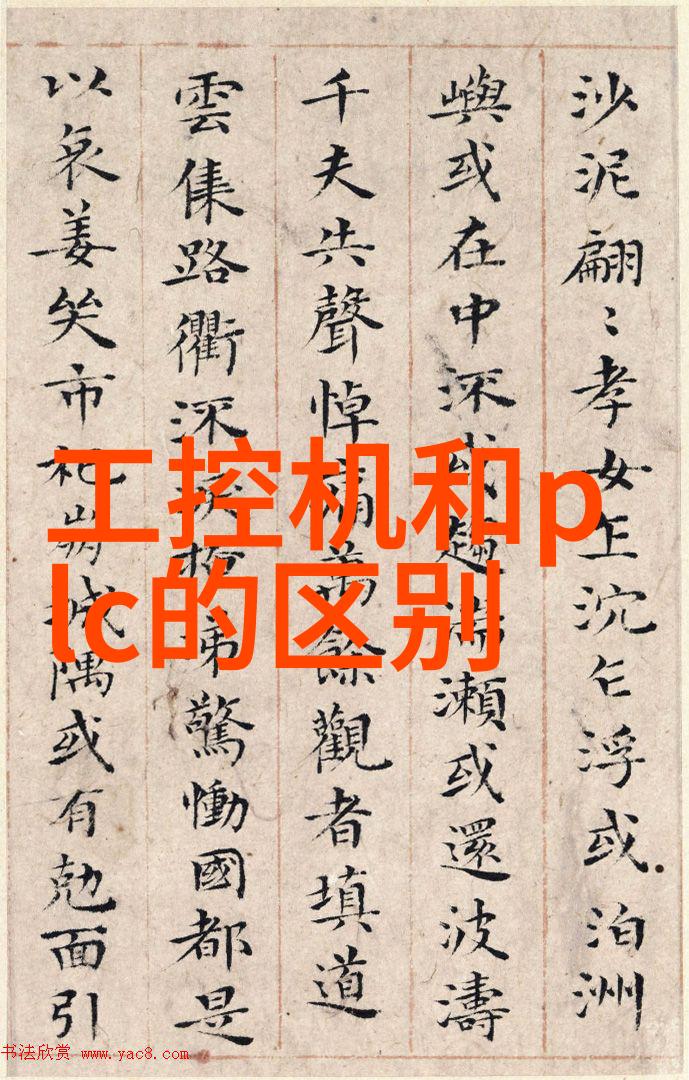 沙泥翩〻孝女乍沉乍浮或泊洲
嶼或在中深或趨湍瀨或還波濤
千夫失聲悼痛萬餘觀者填道
雲集路衢深淚掩涕驚慟國都是
以哀姜哭市杞崩城隅或有剋面引
工控机和p
lc的区别
书法欣赏 www.yac8.com